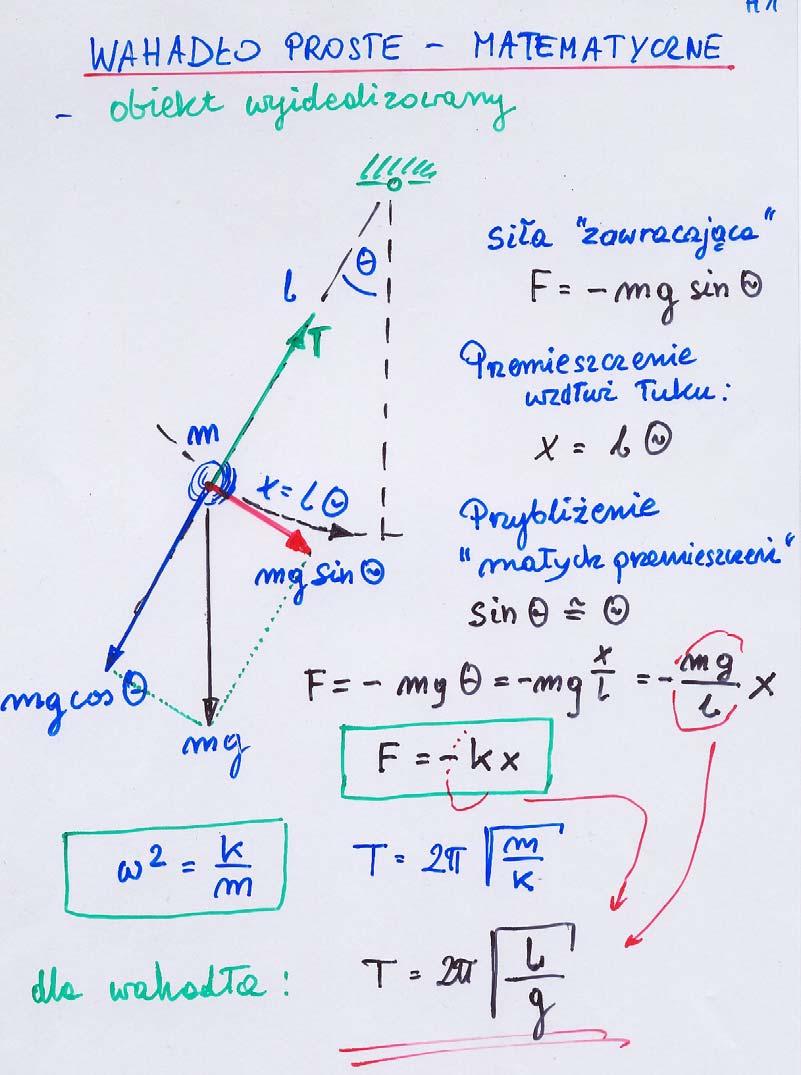 WAHADŁO PROSTE - MATEMATYCZNE
- obiekt wyidealizowany
Θ
l
T
m
x = l Θ
mg sin Θ
mg cos Θ
mg
siła "zawracająca"
F = - mg sin Θ
Przemieszczenie
wzdłuż łuku:
x = l Θ
Przybliżenie
"małych przemieszczeń"
sin Θ ≅ Θ
F = - mg Θ = -mg x/l = - mg/l x
F = -kx
ω² = k/m
T = 2π √(m/k)
dla wahadła:
T = 2π √(l/g)